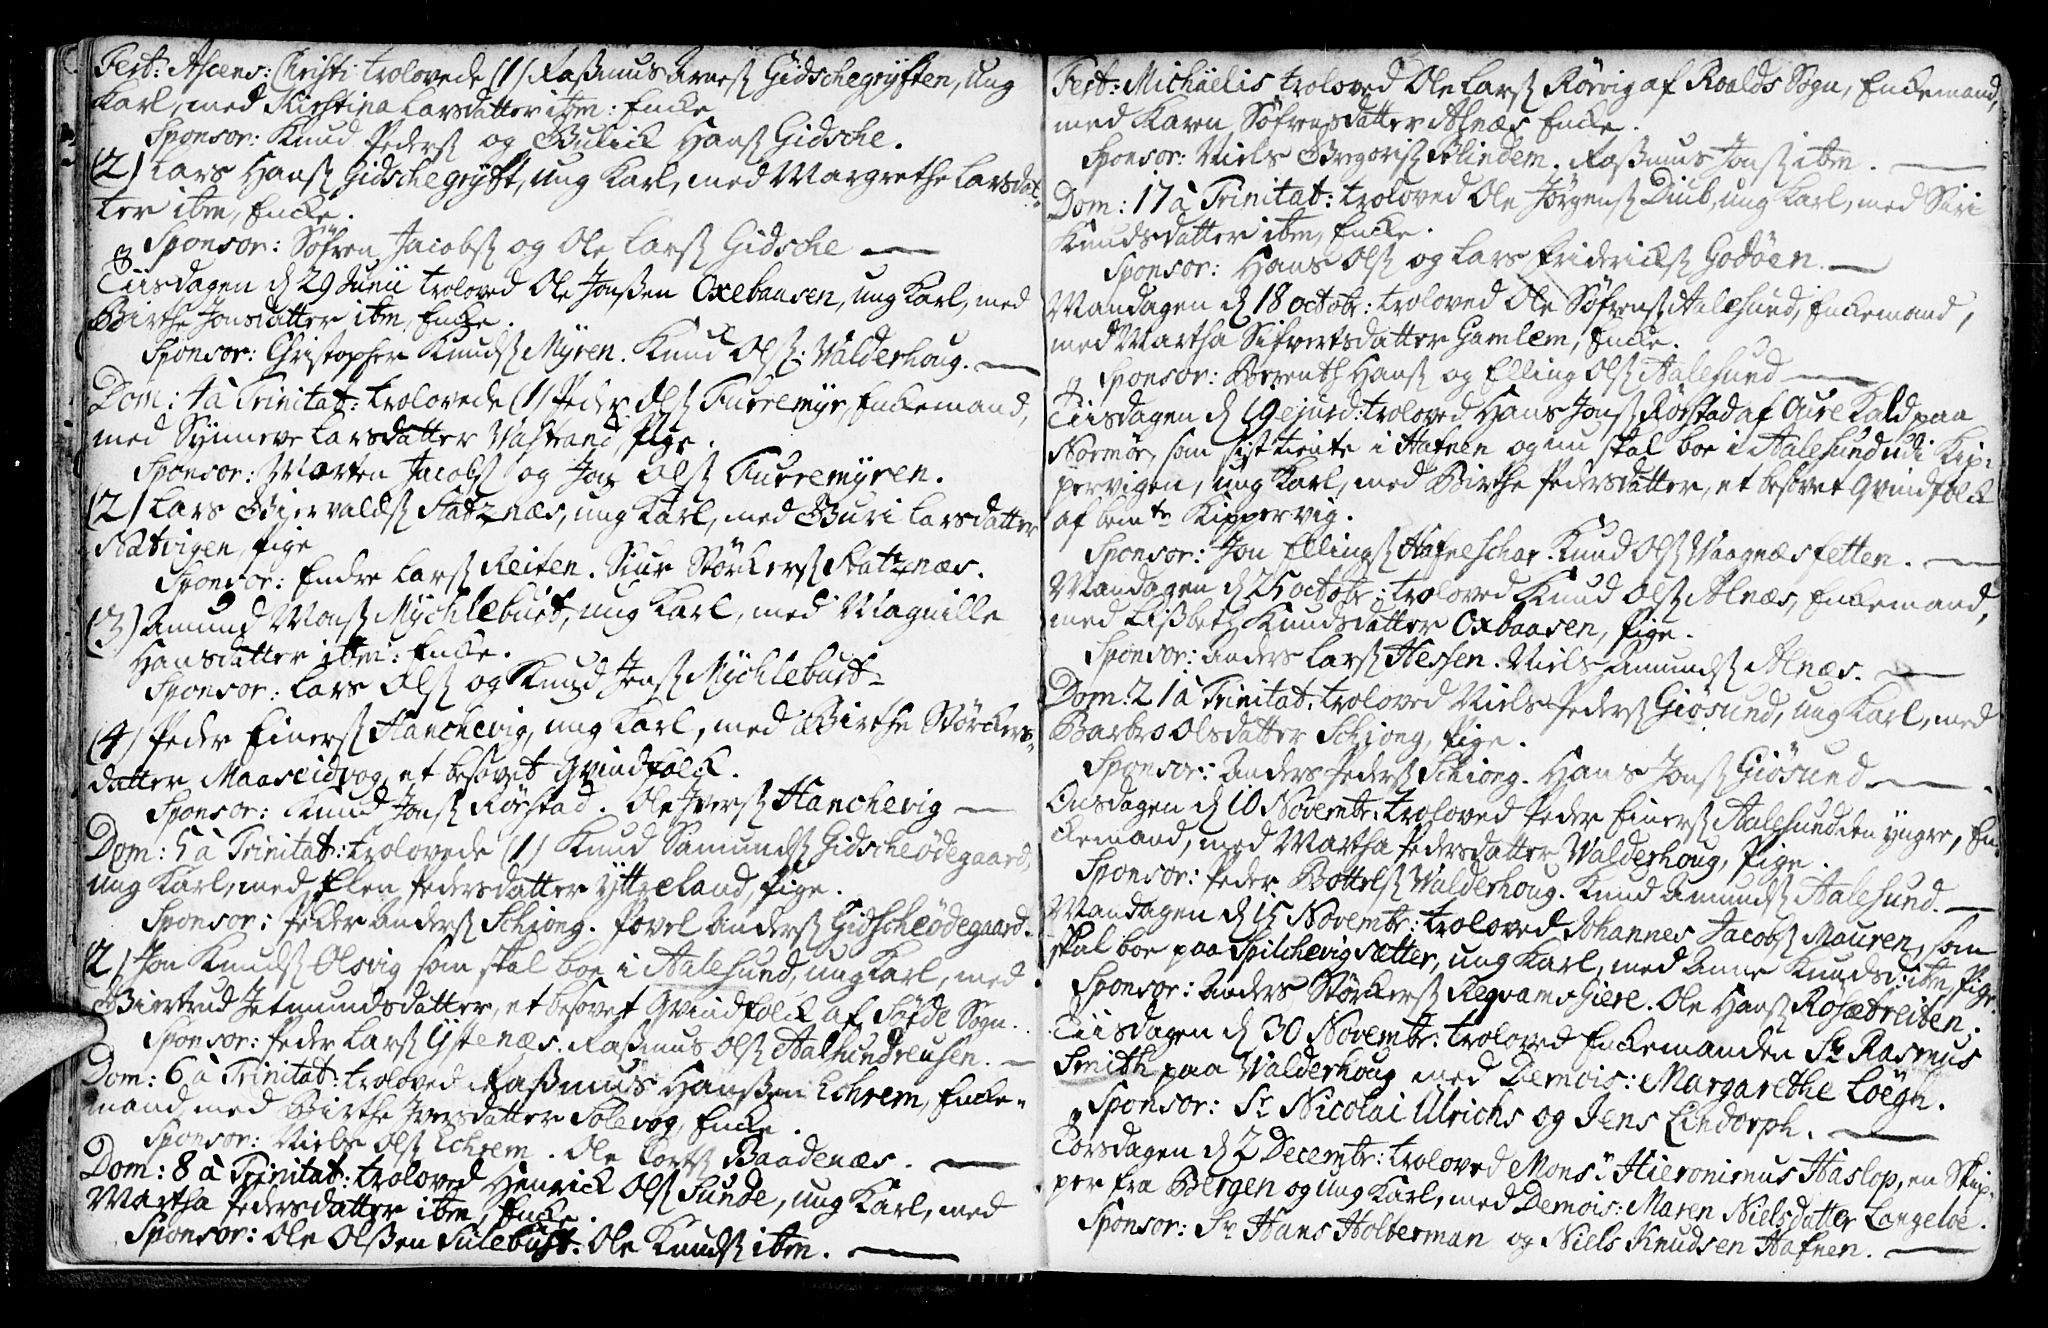 Fest: Ascens: Christi trolovede (1) Rasmus Arnesß Gidschegryften, ung
Karl, med Kirstina Larsdatter ibm: Encke.
Sponsor: Knud Pedersß og Gulick Hansß Gidsche.
(2) Lars Hansß Gidschegryft, ung Karl, med Margrethe Larsdat-
ter ibm, Encke.
Sponsor: Söfren Jacobsß og Ole Larsß Gidsche
Tiisdagen d 29 Junii troloved Ole Jonßen Oxebaasen, ung Karl, med
Birthe Jonsdatter ibm, Encke.
Sponsor: Christopher Knudsß Myren. Knud Olsß: Walderhoug.
Dom: 4 à Trinitat: trolovede (1) Peder Olsß Furremyr, Enckemand,
med Synneve Larsdatter Vastrand, Pige.
Sponsor: Morten Jacobsß og Jon Olsß Furremyren.
(2) Lars Giervaldsß Statznæs, ung Karl, med Guri Larsdatter
Natvigen, Pige
Sponsor: Endre Larsß Reiten. Siur Störckersß Statznæs.
(3) Amund Monsß Mychlebust, ung Karl, med Magnille
Hansdatter ibm: Encke.
Sponsor: Lars Olsß og Knud Jensß Mychlebust
(4) Peder Einersß Hanchevig, ung Karl, med Birthe Störckers-
datter Maaseidvog, et besovet Qvindfolck.
Sponsor: Knud Jonsß Rörstad. Ole Iversß Hanchevig
Dom: 5 à Trinitat: trolovede (1) Knud Samundsß Gidscheödegaard,
ung Karl, med Elen Pedersdatter Yttreland, Pige.
Sponsor: Peder Andersß Schiong. Povel Andersß Gidscheödegaard.
(2) Jon Knudsß Olsvig som skal boe i Aalesund, ung Karl, med
Giertrud Jetmundsdatter, et besovet Qvindfolck af Söfde Sogn.
Sponsor: Peder Larsß Ystenæs. Raßmus Olsß Aalesundreusen.
Dom: 6 à Trinitat: troloved Raßmus Hanßen Echrem, Encke-
mand, med Birthe Iversdatter Solevog, Encke.
Sponsor: Niels Olsß Echrem. Ole Baadenæs.
Dom: 8 à Trinitat: troloved Henrick Olsß Sunde, ung Karl, med
Martha Pedersdatter ibm, Encke.
Sponsor: Ole Olßen Sulebust. Ole Knudsß ibm.
Fest: Michäelis troloved Ole Larsß Rörvig af Roalds Sogn, Enckemand,
med Karen Söfrensdatter Alnæs Encke.
Sponsor: Niels Gregorisß Blindem. Raßmus Jonsß ibm.
Dom: 17 à Trinitat: troloved Ole Jörgensß Diub, ung Karl, med Siri
Knudsdatter ibm, Encke.
Sponsor: Hans Olsß og Lars Fridericksß Godöen.
Mandagen d 18 Octobr: troloved Ole Söfrensß Aalesund, Enckemand,
med Martha Sifvertsdatter Gamlem, Encke.
Sponsor: Berenth Hansß og Elling Olsß Aalesund
Tiisdagen d 19 ejusd: troloved Hans Jonsß Rörstad af Aure Kald paa
Normör, som sist tiente i Hafnen og nu skal boe i Aalesund udi Kip-
pervigen, ung Karl, med Birthe Pedersdatter, et besovet Qvindfolck
af bem.te Kippervig.
Sponsor: Jon Ellingsß Hafneschar. Knud Olsß Vaagnæsfetten.
Mandagen d 25 Octobr: troloved Knud Olsß Alnæs, Enckemand,
med Lißbeth Knudsdatter Oxbaasen, Pige.
Sponsor: Anders Larsß Hessen. Niels Amundsß Alnæs.
Dom: 21 à Trinitat: troloved Niels Pedersß Giösund, ung Karl, med
Barbro Olsdatter Schiong, Pige.
Sponsor: Anders Pedersß Schiong. Hans Jonsß Giösund.
Onsdagen d 10 Novembr: troloved Peder Einersß Aalesund den yngre, En-
ckemand, med Martha Pedersdatter Walderhoug, Pige.
Sponsor: Peder Bottelsß Walderhoug. Knud Amundsß Aalesund.
Mandagen d 15 Novembr: troloved Johannes Jacobsß Mauren, som
skal boe paa Spilchevigsætter, ung Karl, med Anne Knudsd: ibm, Pige.
Sponsor: Anders Störckersß Reqvamsgiere. Ole Hansß Rosætreiten.
Tiisdagen d 30 Novembr: troloved Enckemanden Sr Rasmus
Smith paa Walderhoug med Demois: Margarethe Löegh.
Sponsor: Sr Nicolai Ulrichs og Jens Lindorph.
Torsdagen d 2 Decembr: troloved Monsr Hieronimus Haslop, en Skip-
per fra Bergen og ung Karl, med Demois: Maren Nielsdatter Langeloe.
Sponsor: Sr Hans Holberman og Niels Knudsen Hafnen.